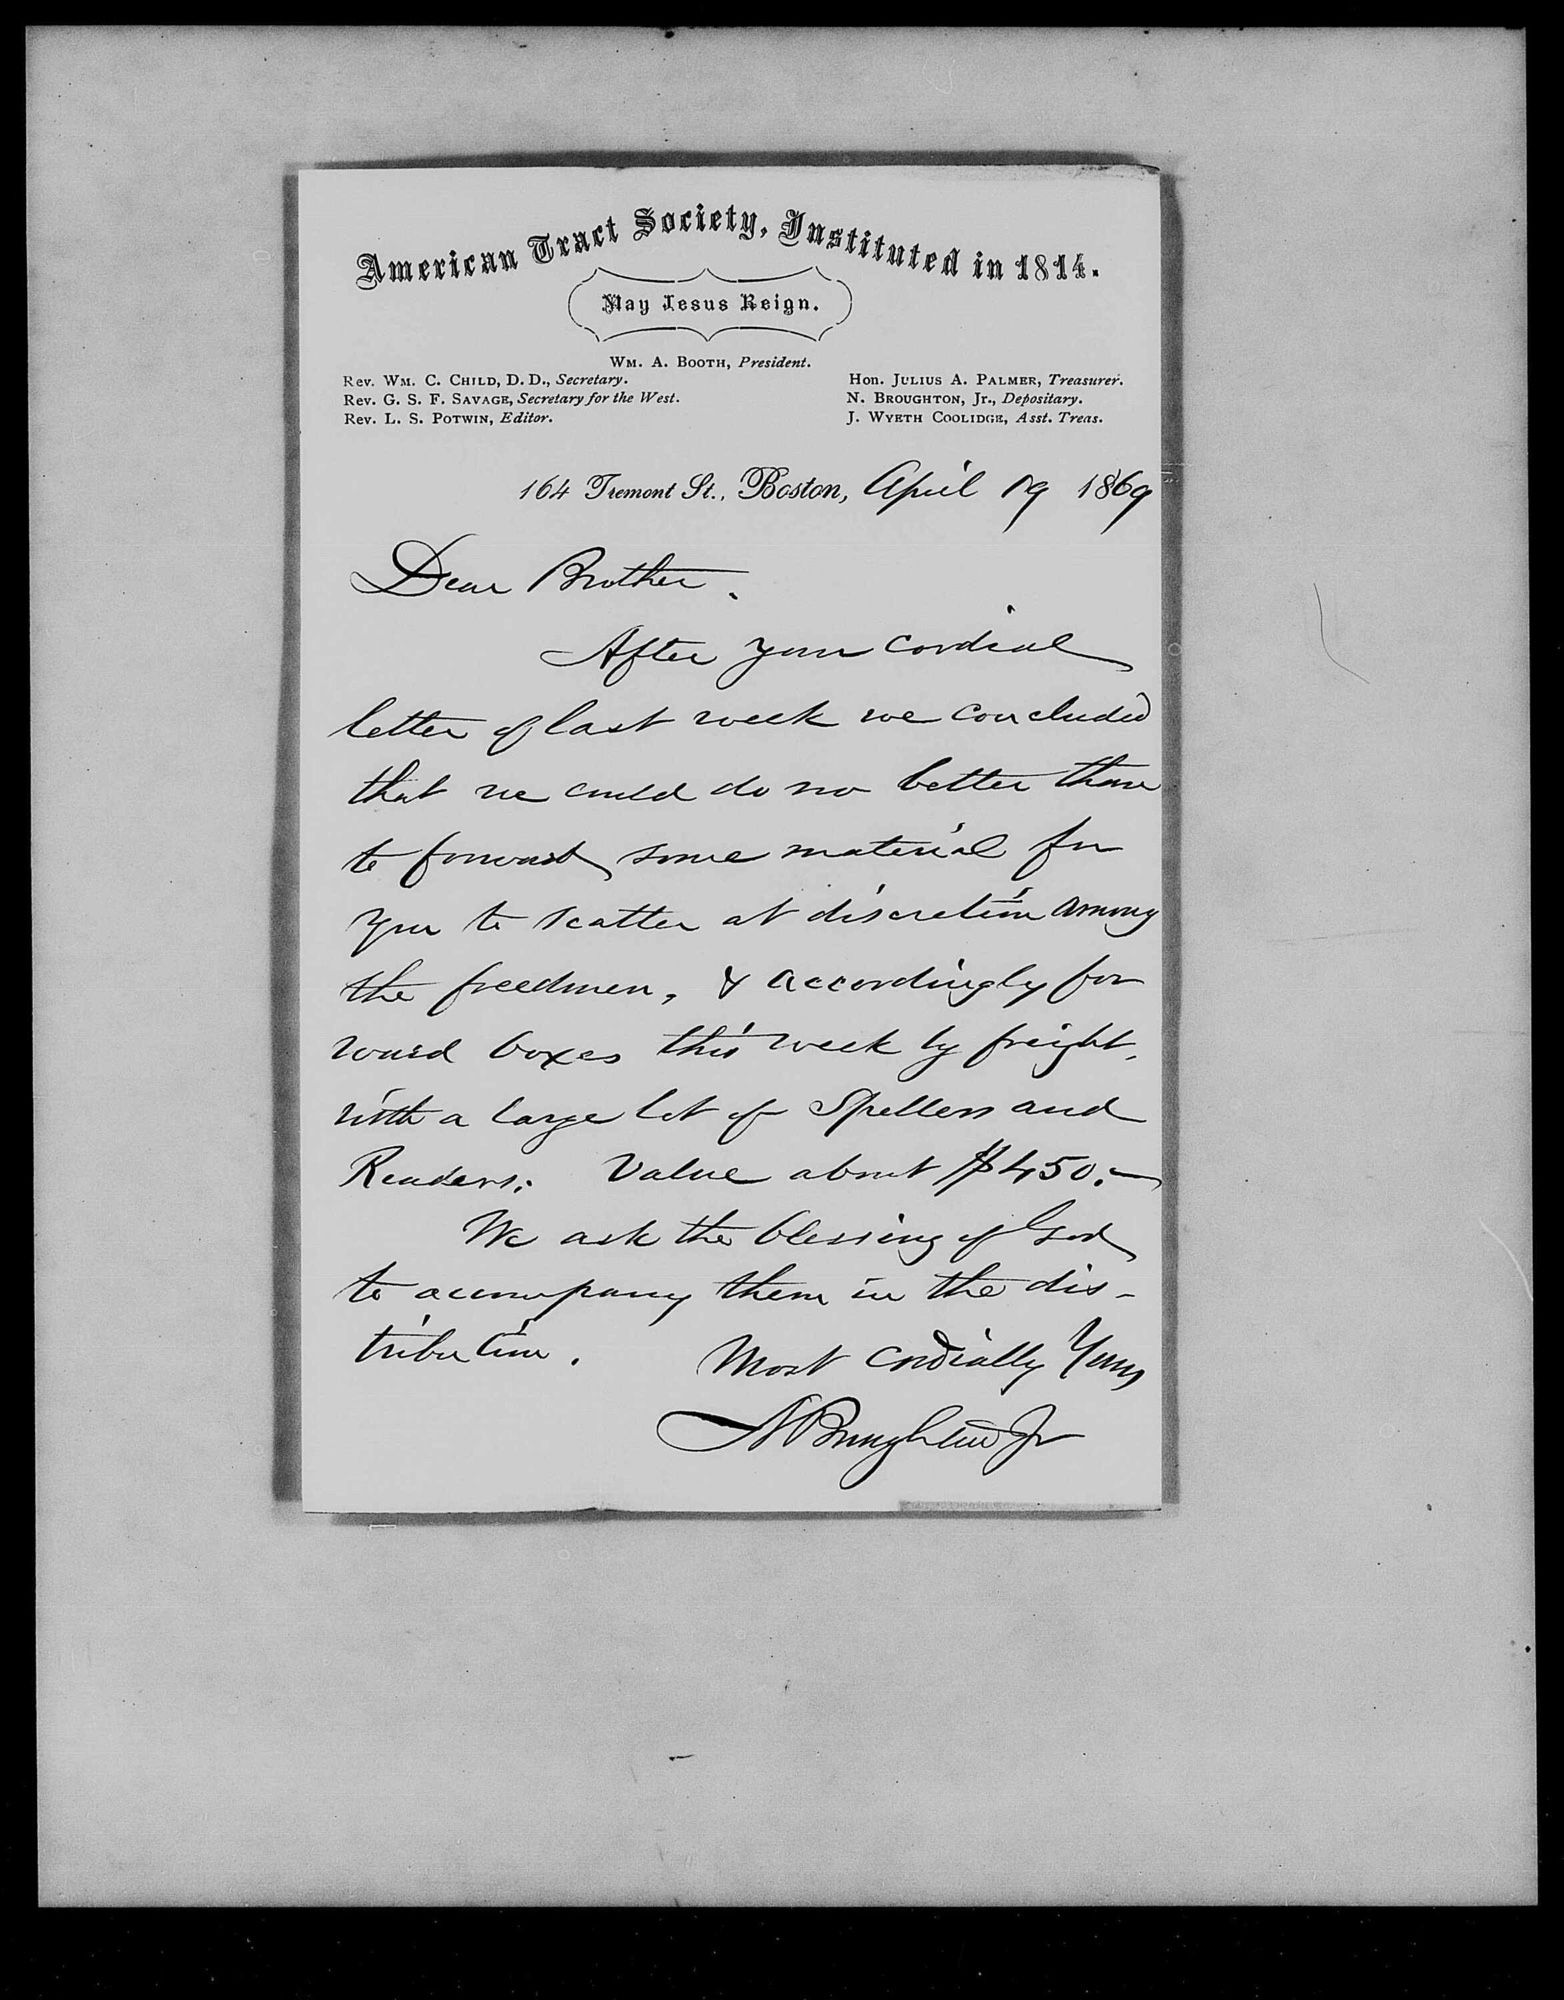 American Tract Society, Instituted in 1814.
May Jesus Reign.
Wm. A. Booth, President.
Rev. Wm. C. Child, D. D., Secretary.
Rev. G. S. F. Savage, Secretary for the West.
Rev. L. S. Potwin, Editor.
Hon. Julius A. Palmer, Treasurer.
N. Broughton, Jr., Depositary.
J. Wyeth Coolidge, Asst. Treas.
164 Tremont St., Boston, April 19 1869
Dear Brother.
After your cordial
letter of last week we concluded
that we could do no better than
to forward some material for
you to scatter at discretion among
the freedmen, & accordingly for
ward boxes this week by freight,
with a large lot of Spellers and
Readers. Value about $450.—
We ask the blessing of God
to accompany them in the dis-
tribution.
Most cordially Yours
N Broughton Jr